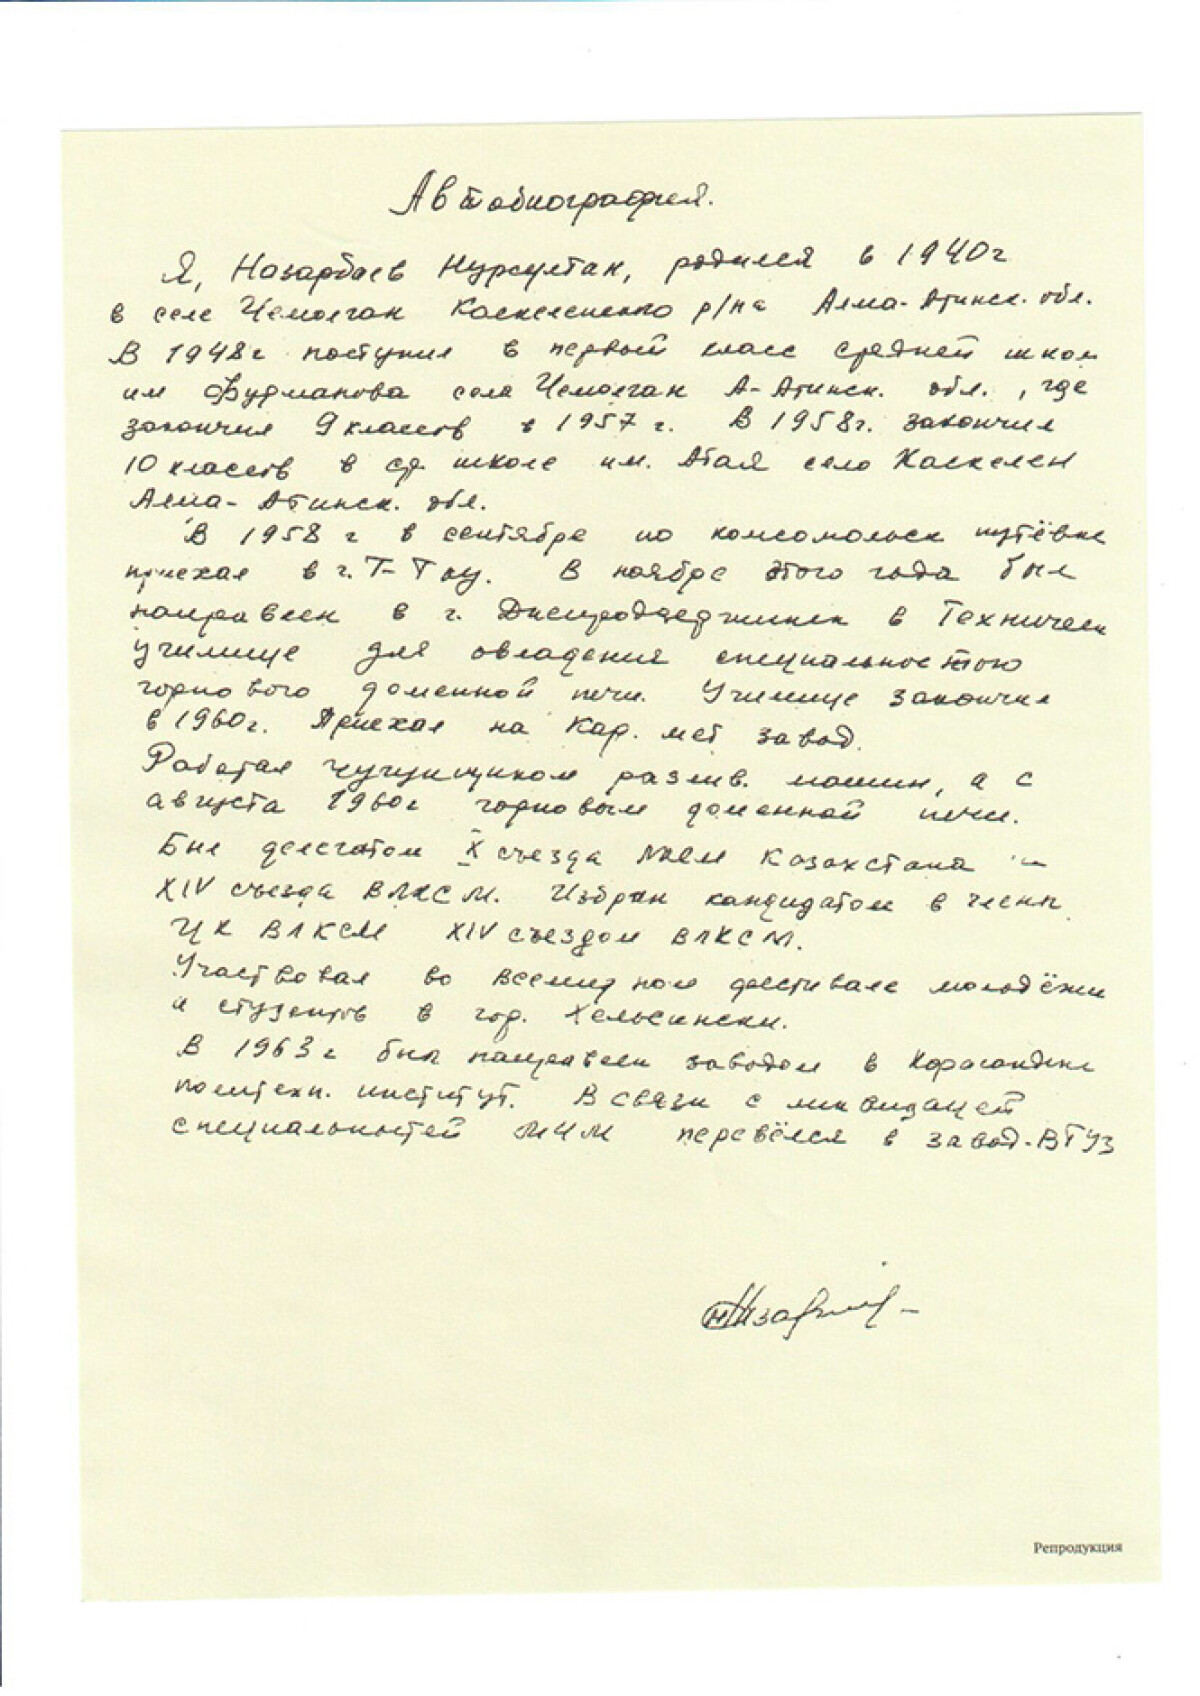 Автобиография.
Я, Назарбаев Нурсултан, родился в 1940г
в селе Чемолган Каскеленского р/на Алма-Атинск. обл.
В 1948г поступил в первый класс средней школ
им Фурманова села Чемолган А-Атинск. обл., где
закончил 9 классов в 1957 г. В 1958г. закончил
10 классов в ср. школе им. Абая село Каскелен
Алма-Атинск. обл.
В 1958 г в сентябре по комсомольск путёвке
приехал в г. Т-Тау. В ноябре этого года был
направлен в г. Днепродзержинск в Техническ
училище для овладения специальностью
горнового доменной печи. Училище закончил
в 1960г. Приехал на Кар. мет завод.
Работал чугунщиком разлив. машин, а с
августа 1960г горновым доменной печи.
Был делегатом X съезда ЛКСМ Казахстана и
XIV съезда ВЛКСМ. Избран кандидатом в члены
ЦК ВЛКСМ XIV съездом ВЛКСМ.
Участвовал во Всемирном фестивале молодёжи
и студентов в гор. Хельсински.
В 1963г был направлен заводом в Карагандинс
политехн. институт. В связи с ликвидацией
специальностей МЧМ перевёлся в завод-ВТУЗ
Репродукция